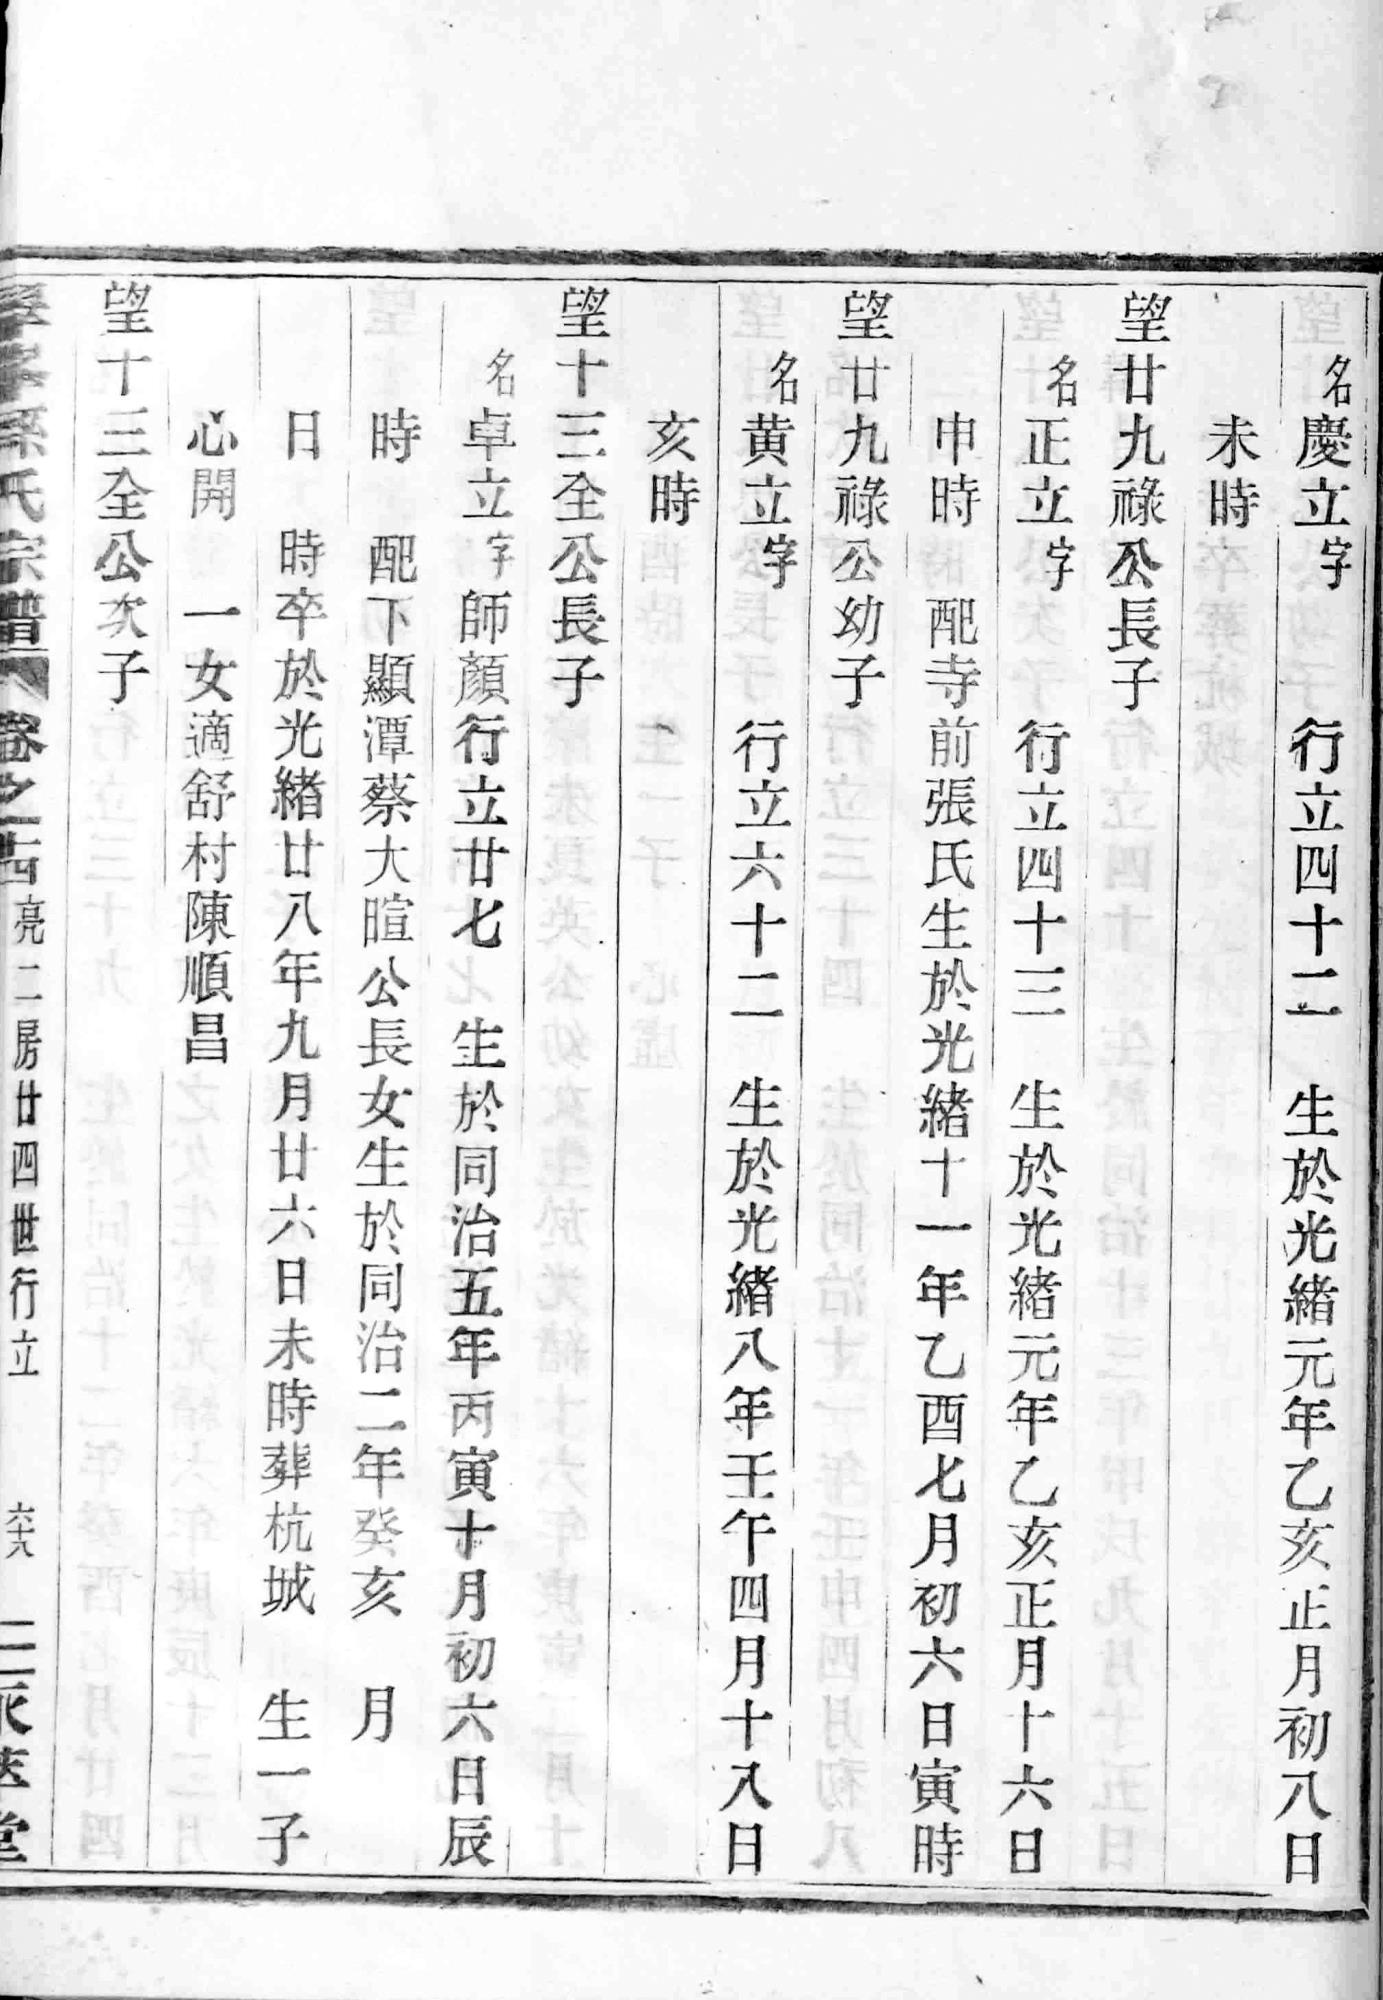 名慶立字 行立四十二 生於光緒元年乙亥正月初八日
未時
望廿九祿公長子
名正立字 行立四十三 生於光緒元年乙亥正月十六日
申時 配寺前張氏生於光緒十一年乙酉七月初六日寅時
望廿九祿公幼子
名黄立字 行立六十二 生於光緒八年壬午四月十八日
亥時
望十三全公長子
名卓立字師顏行立廿七 生於同治五年丙寅十月初六日辰
時 配下顯潭蔡大暄公長女生於同治二年癸亥 月
日 時卒於光緒廿八年九月廿六日未時葬杭城 生一子
心開 一女適舒村陳順昌
望十三全公次子
孫氏宗譜 卷之 亮二房廿四世行立 六十八 堂